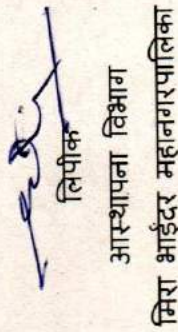 लिपीक
आस्थापना विभाग
मिरा भाईंदर महानगरपालिका